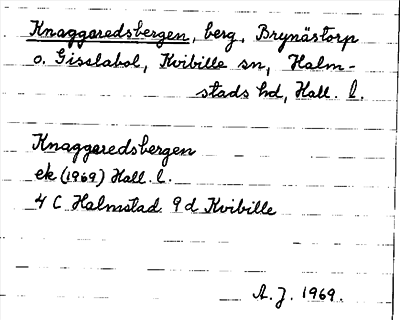 Knaggaredsbergen, berg, Brynästorp
o. Gisslabol, Kvibille sn, Halm-
stads hd, Hall. l.
Knaggeredsbergen
ek (1969) Hall. l.
4 C Halmstad 9 d Kvibille
A. J. 1969.